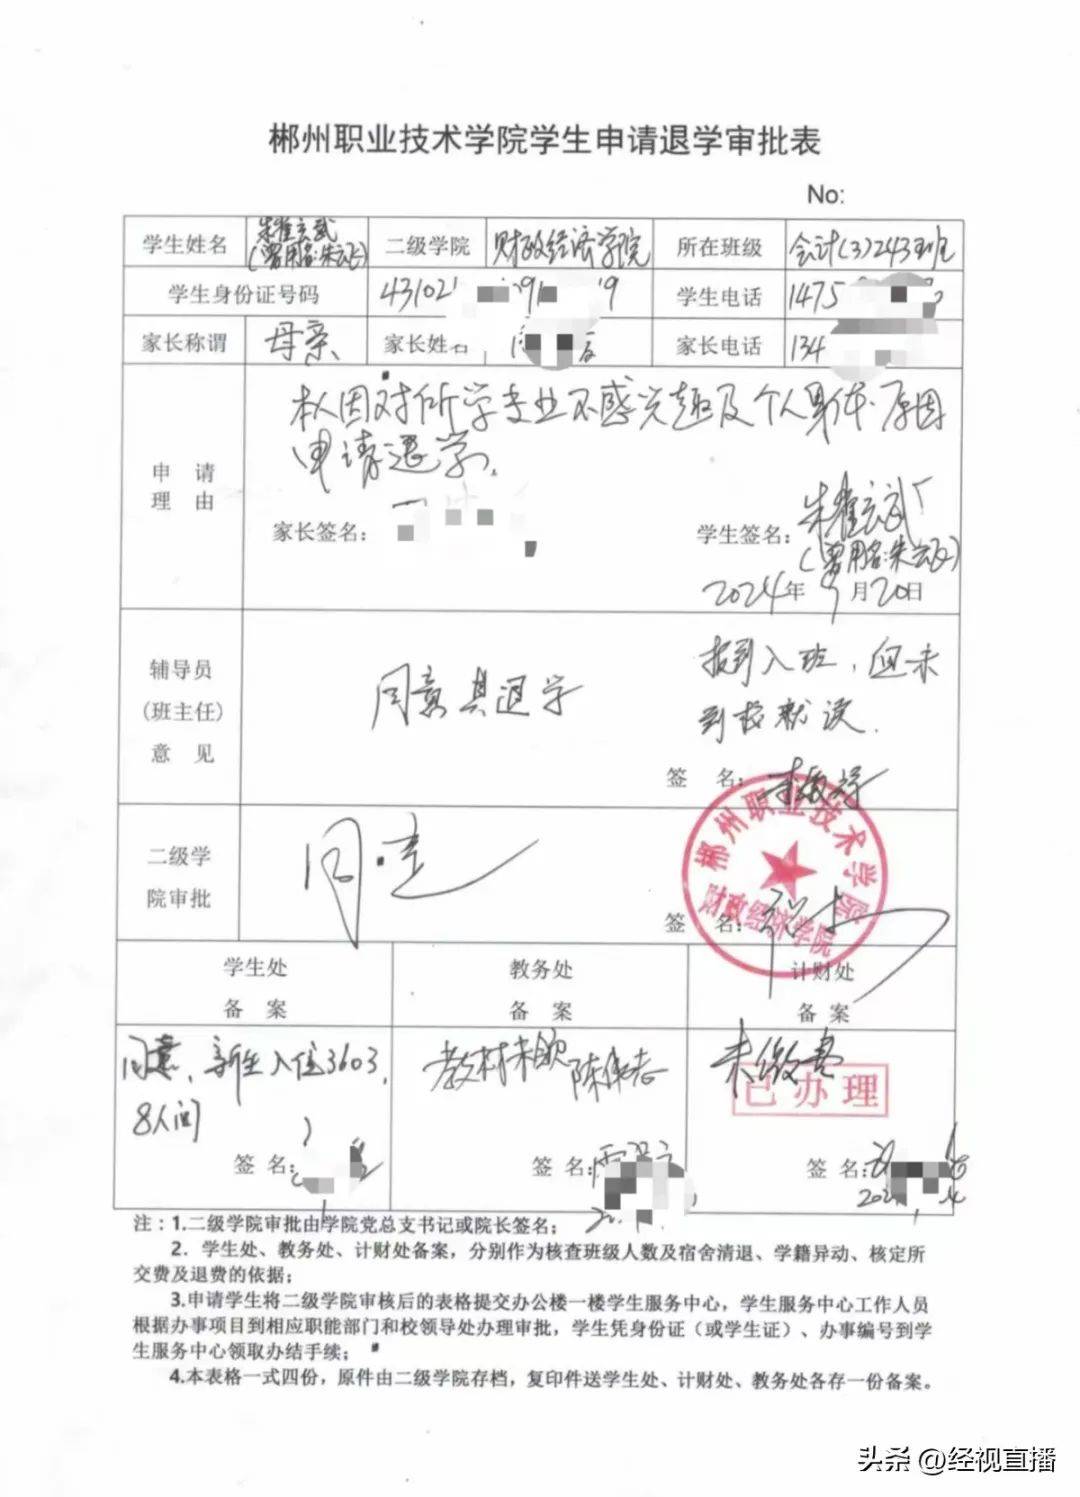 郴州职业技术学院学生申请退学审批表
No:
学生姓名 朱雀玄武 二级学院 财政经济学院 所在班级 会计(3)243班
(曾用名:朱云飞)
学生身份证号码 43102 学生电话 1475
家长称谓 母亲 家长姓名 家长电话 134
申请理由
本人因对所学专业不感兴趣及个人身体原因
申请退学.
家长签名: 学生签名: 朱雀玄武
(曾用名:朱云飞)
2024年9月20日
辅导员
(班主任)
意见
同意其退学
报到入班,但未
到校就读.
签名:
二级学
院审批
同意
签名:
郴州职业技术学院
财政经济学院
学生处 教务处 计财处
备案 备案 备案
同意、新生入住3603, 教材未领 未缴费
8人间
已办理
签名: 签名: 签名:
注:1.二级学院审批由学院党总支书记或院长签名;
2. 学生处、教务处、计财处备案,分别作为核查班级人数及宿舍清退、学籍异动、核定所
交费及退费的依据;
3.申请学生将二级学院审核后的表格提交办公楼一楼学生服务中心,学生服务中心工作人员
根据办事项目到相应职能部门和校领导处办理审批,学生凭身份证(或学生证)、办事编号到学
生服务中心领取办结手续;
4.本表格一式四份,原件由二级学院存档,复印件送学生处、计财处、教务处各存一份备案。
头条 @经视直播